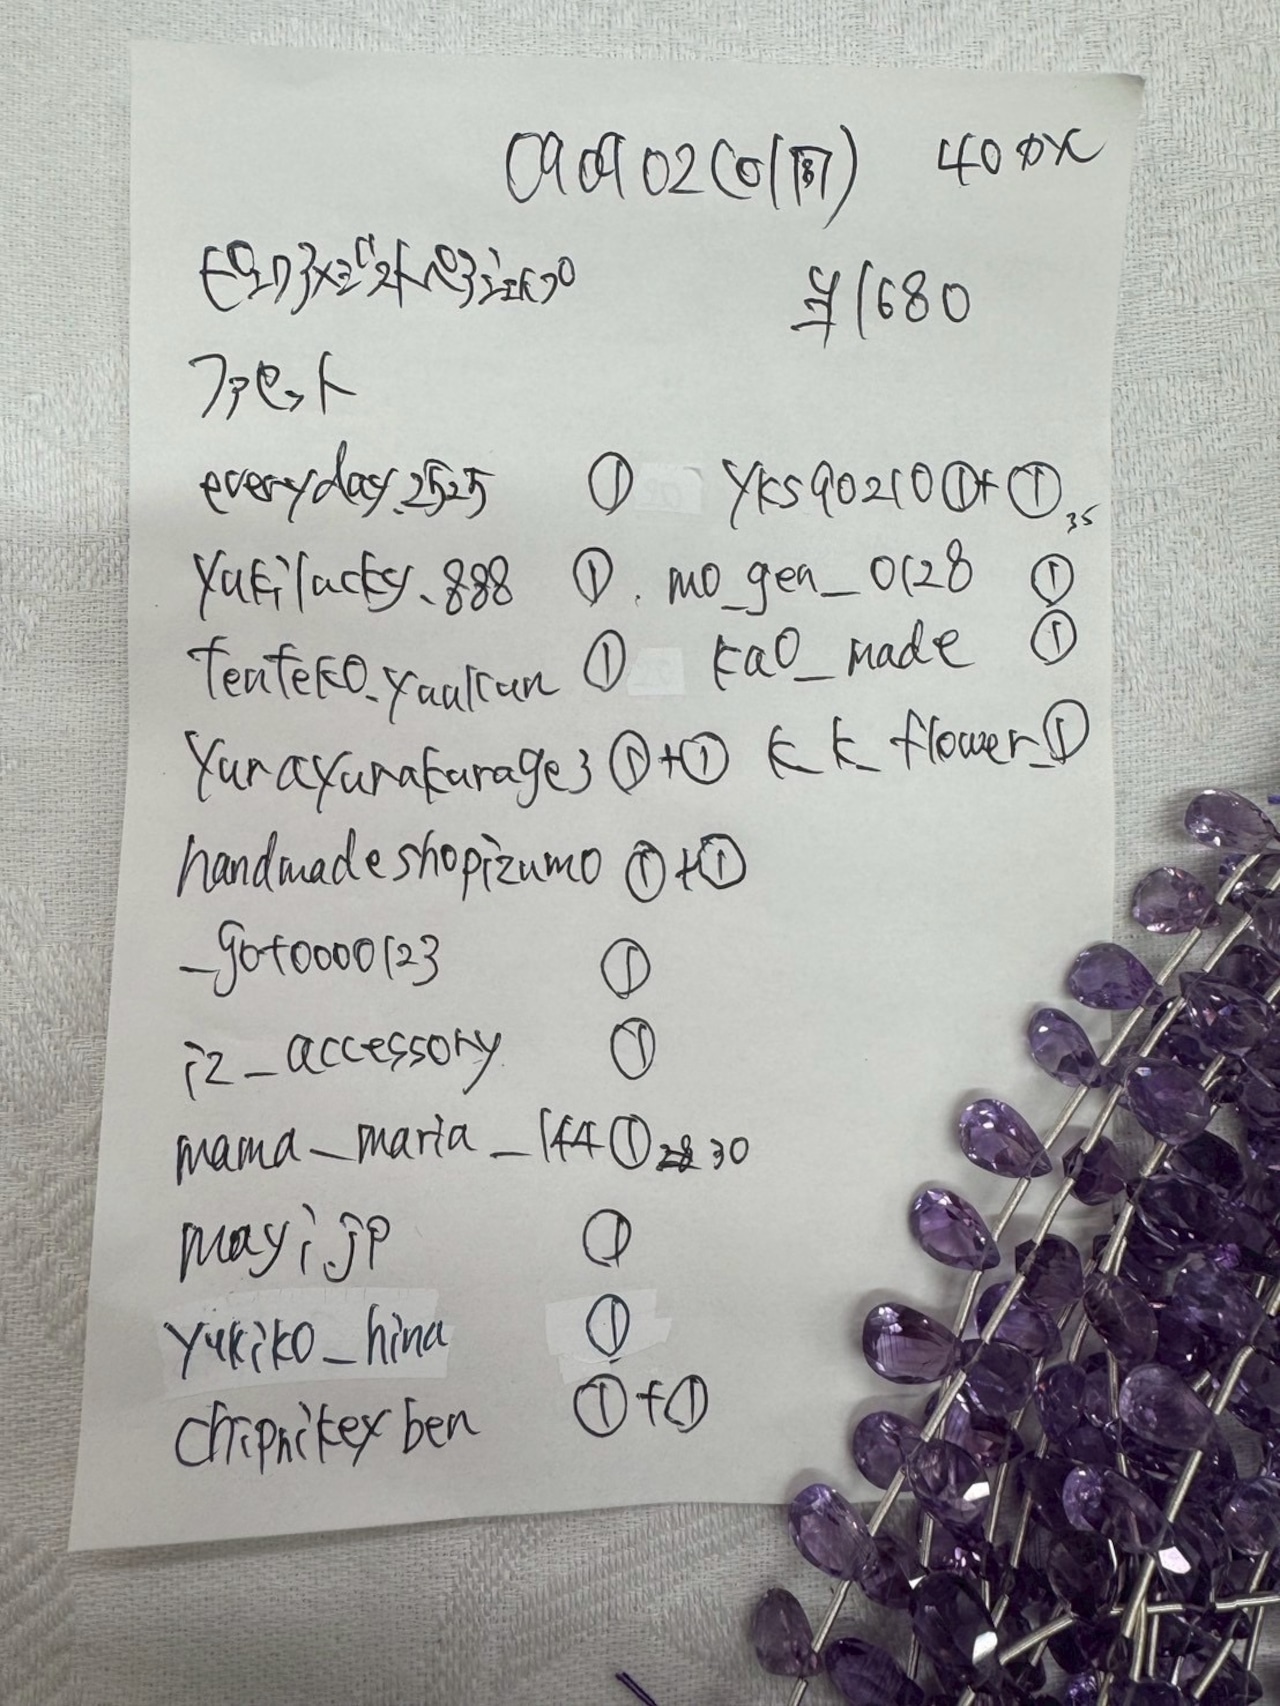 090902(01閉) 40px
¥1680
ファセット
everyday.2525 ① yks90210①+① 35
yukilucky.888 ① mo_gen_0128 ①
tenteko_yuukun ① kao_made ①
yurayurakurage3 ①+① k_k_flower_①
handmadeshopizumo ①+①
_goto0000123 ①
iz_accessory ①
mama_maria_144① 30
mayi.jp ①
yukiko_hina ①
chipnikeyben ①+①